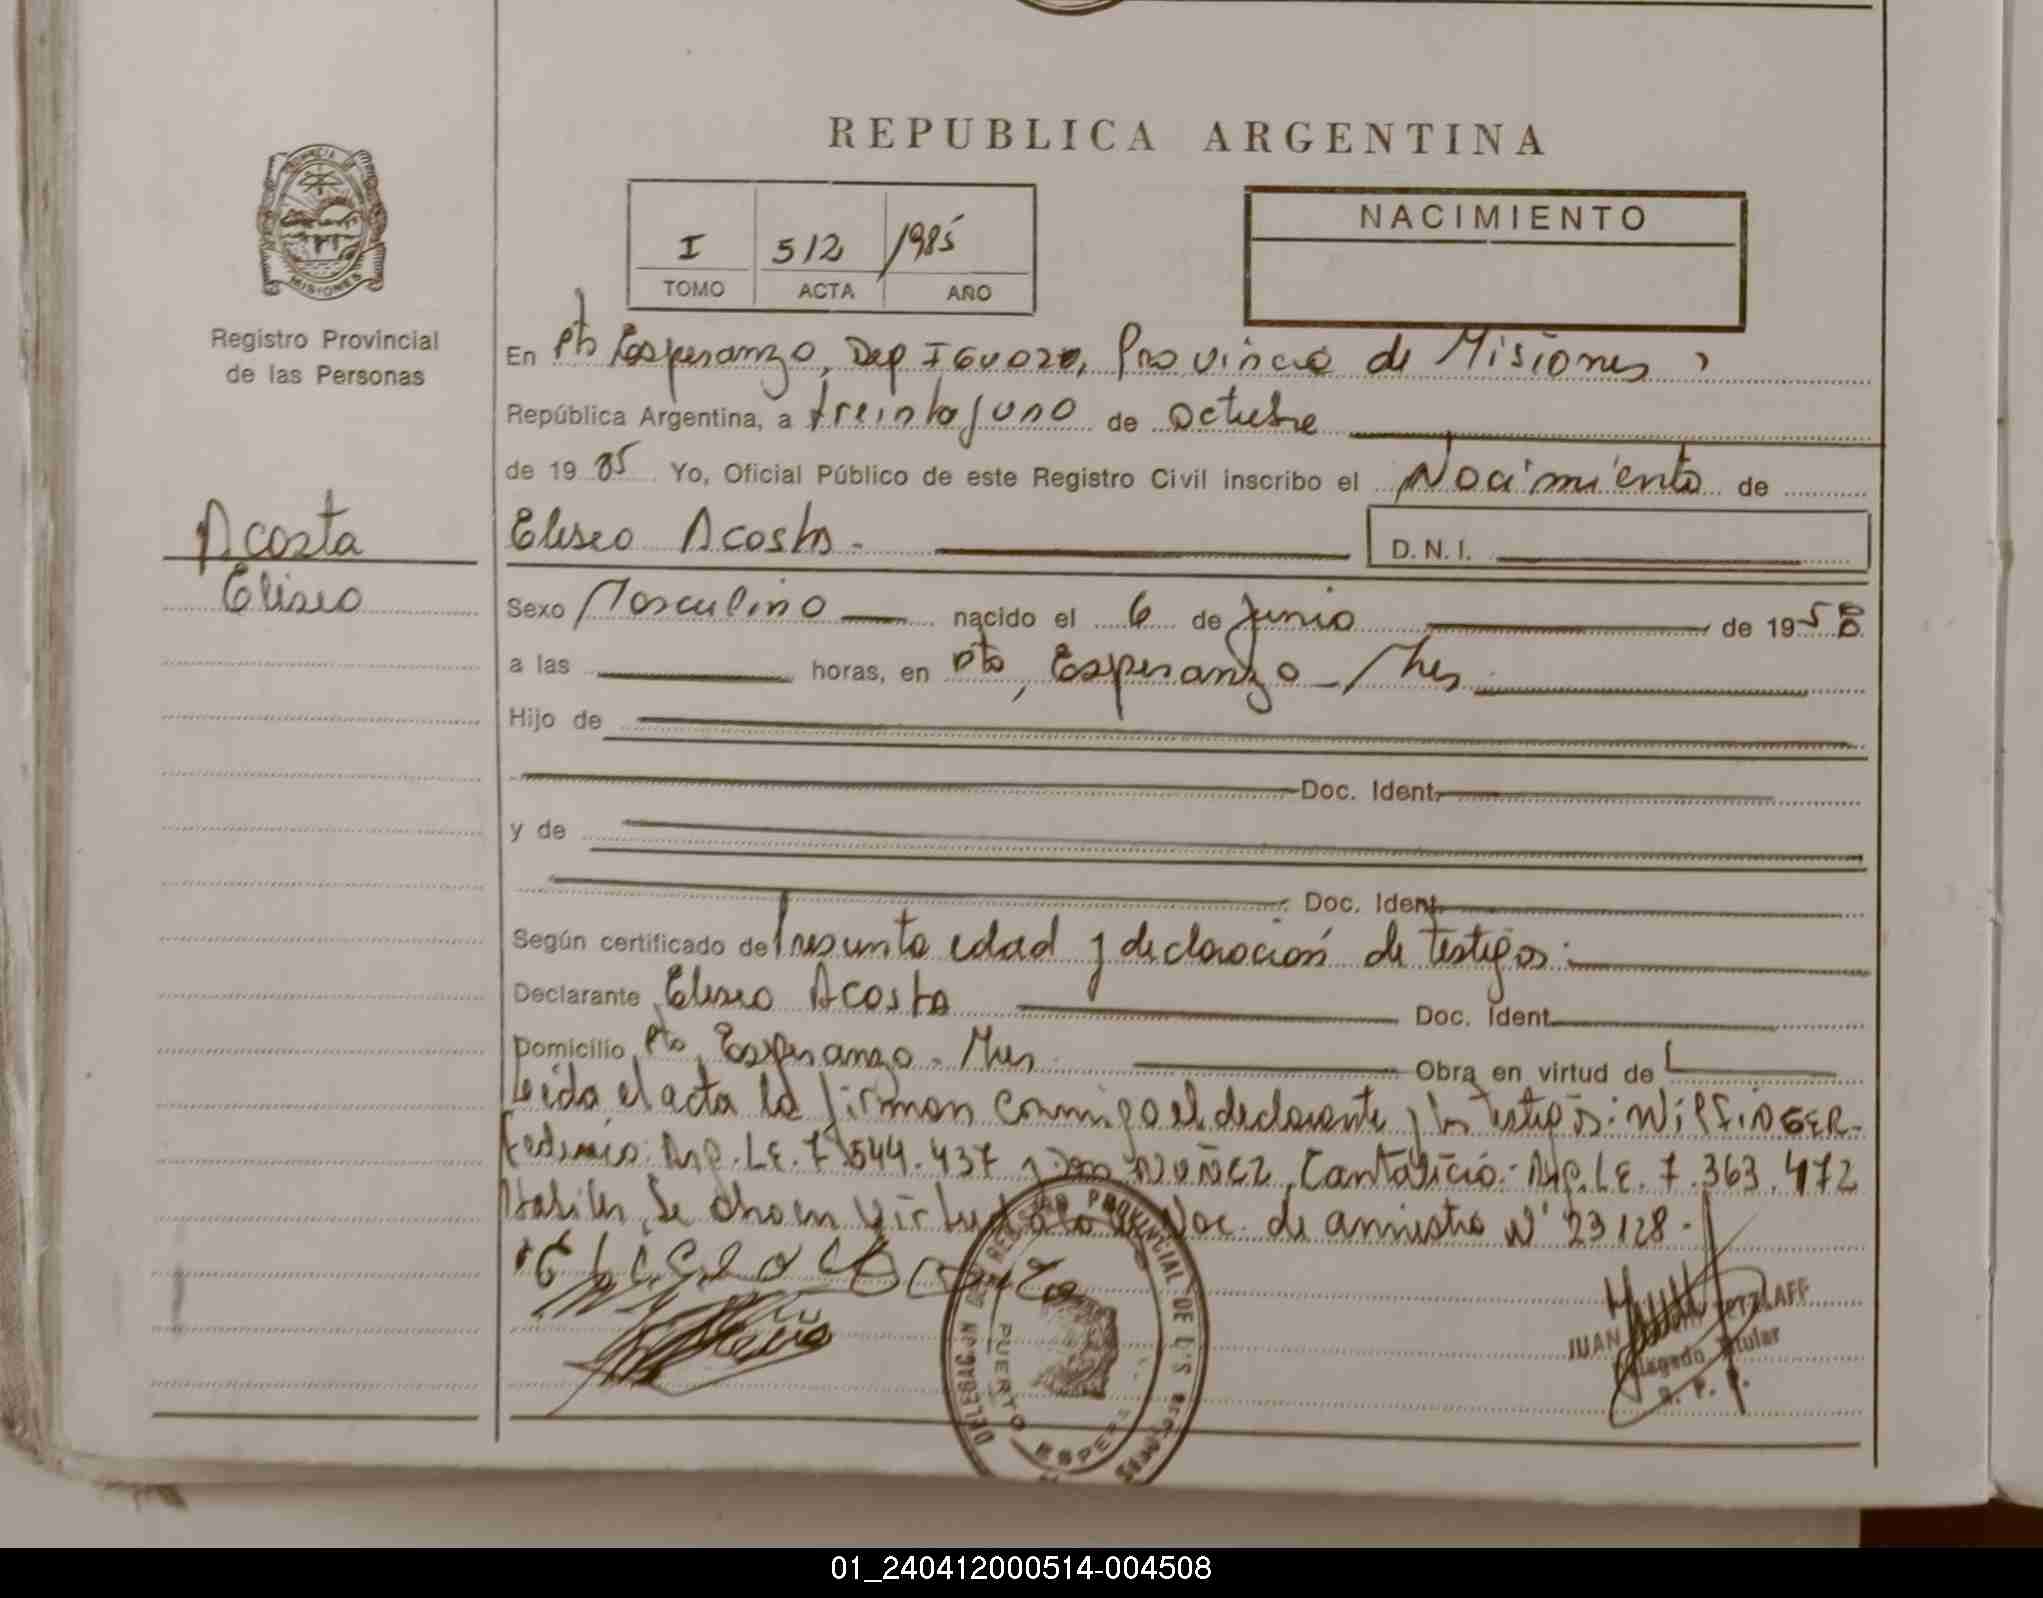 REPUBLICA ARGENTINA
PROVINCIA DE
MISIONES
Registro Provincial
de las Personas
I 512 /1985
TOMO ACTA AÑO
NACIMIENTO
En Pto Esperanza, Dep IGUAZU, Provincia de Misiones,
República Argentina, a treinta y uno de Octubre
de 1985 Yo, Oficial Público de este Registro Civil inscribo el Nacimiento de
Acosta
Eliseo
Eliseo Acosta. D. N. I.
Sexo Masculino nacido el 6 de Junio de 1958
a las horas, en Pto, Esperanza - Mnes
Hijo de
Doc. Ident.
y de
Doc. Ident.
Según certificado de Presunta edad y declaración de testigos.
Declarante Eliseo Acosta Doc. Ident.
Domicilio Pto, Esperanza - Mnes Obra en virtud de
Leida el acta la firman conmigo el declarante y los testigos: WilfiNGER-
Federico. Arg. L.E. 7.544.437 y NUÑEZ, Cantalicio.- Arg. L.E. 7.363.472
Habiles, Se en virtud a la Doc. de amnistia Nº 23128.
Eliseo Acosta
DELEGACION REGISTRO PROVINCIAL DE L'S PERSONAS
PUERTO ESPERA
JUAN
Delegado Titular
R. P. P.
01_240412000514-004508